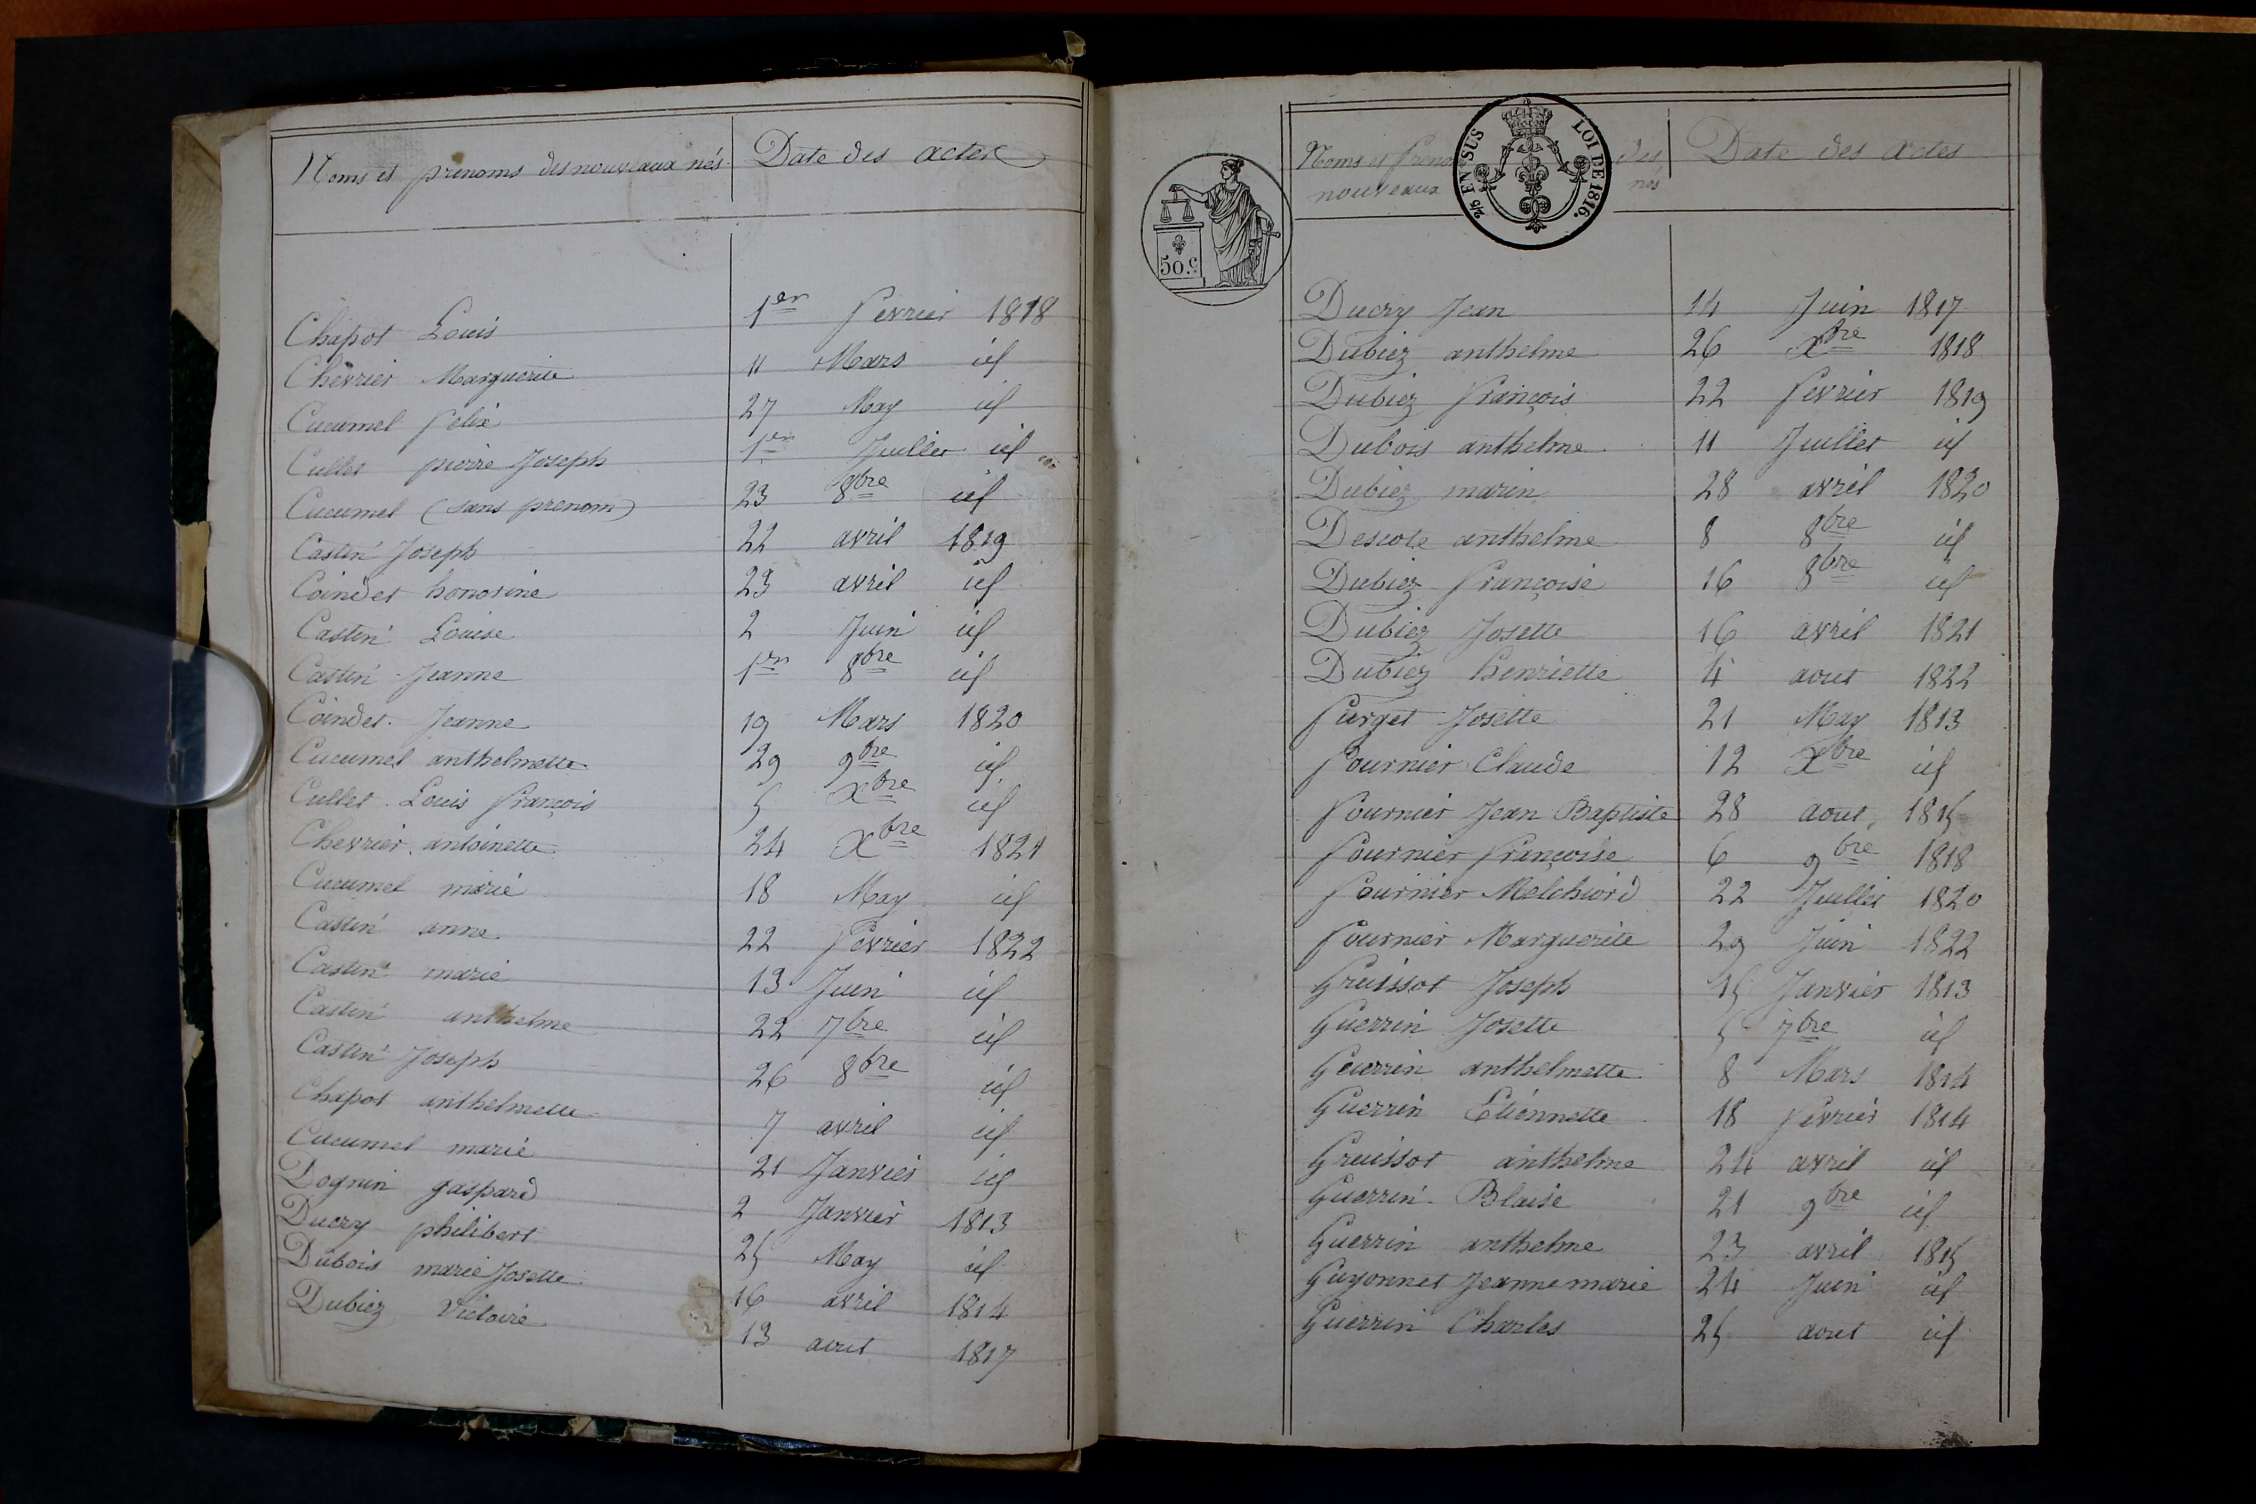 Noms et prenoms des nouveaux nés Date des actes
Chapot Louis 1er fevrier 1818
Chevrier Marguerite 11 Mars id
Cucumel felix 27 May id
Cullet pierre Joseph 1er Juillet id
Cucumel (sans prenom) 23 8bre id
Castin Joseph 22 avril 1819
Coindet honorine 23 avril id
Castin Louise 2 Juin id
Castin Jeanne 1er 8bre id
Coindet Jeanne 19 Mars 1820
Cucumel anthelmette 29 9bre id
Cullet Louis françois 5 Xbre id
Chevrier antoinette 24 Xbre 1821
Cucumel marie 18 May id
Castin anne 22 fevrier 1822
Castin marie 13 Juin id
Castin anthelme 22 7bre id
Castin Joseph 26 8bre id
Chapot anthelmette 7 avril id
Cucumel marie 21 Janvier id
Dognin gaspard 2 Janvier 1813
Ducry philibert 25 May id
Dubois marie Josette 16 avril 1814
Dubiez Victoire 13 aout 1817
2/5 EN SUS LOI DE 1816.
50 c.
Noms et prenoms des Date des actes
nouveaux nés
Ducry Jean 14 Juin 1817
Dubiez anthelme 26 Xbre 1818
Dubiez françois 22 fevrier 1819
Dubois anthelme 11 Juillet id
Dubiez marin 28 avril 1820
Descote anthelme 8 8bre id
Dubiez françoise 16 8bre id
Dubiez Josette 16 avril 1821
Dubiez henriette 4 aout 1822
furget Josette 21 May 1813
fournier Claude 12 Xbre id
fournier Jean Baptiste 28 aout 1815
fournier françoise 6 9bre 1818
fournier Melchiord 22 Juillet 1820
fournier Marguerite 29 Juin 1822
Gruissot Joseph 15 Janvier 1813
Guerrin Josette 5 7bre id
Guerrin anthelmette 8 Mars 1814
Guerrin Etiennette 18 fevrier 1814
Gruissot anthelme 24 avril id
Guerrin Blaise 21 9bre id
Guerrin anthelme 23 avril 1815
Guyonnet Jeanne marie 24 Juin id
Guerrin Charles 25 aout id